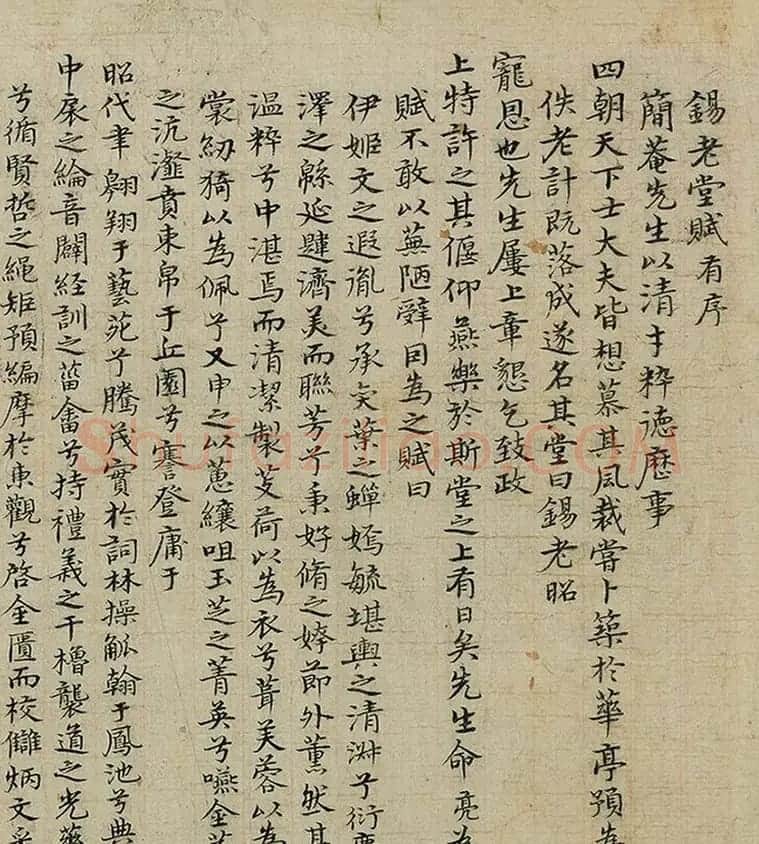 錫老堂賦有序
簡菴先生以清才粹德歷事
四朝天下士大夫皆想慕其風裁嘗卜築於華亭預為
佚老計既落成遂名其堂曰錫老昭
寵恩也先生屢上章懇乞致政
上特許之其偃仰燕樂於斯堂之上有日矣先生命亮為
賦不敢以蕪陋辭因為之賦曰
伊姬文之遐胤兮承奕葉之蟬嫣毓堪輿之清淑兮衍
澤之緜延肆濟美而聯芳兮秉好脩之姱節外薰然其
溫粹兮中湛焉而清潔製芰荷以為衣兮葺芙蓉以為
裳紉猗以為佩兮又申之以蕙纕咀玉芝之菁英兮嚥金
之沆瀣賁束帛于丘園兮謇登庸于
昭代聿翱翔于藝苑兮騰茂實於詞林操觚翰于鳳池兮典
中扆之綸音闢經訓之菑畬兮持禮義之干櫓襲道之光華
兮循賢哲之繩矩預編摩於東觀兮啓金匱而校讎炳文采
Shufaziliao.COM